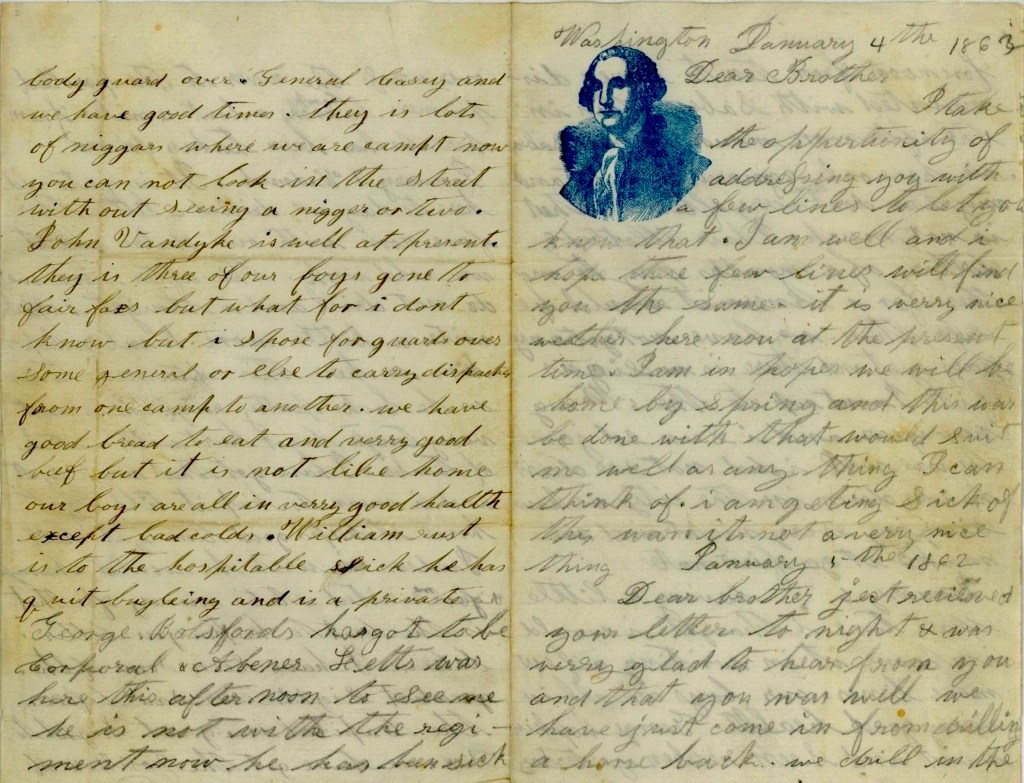 body guard over. General Casey and
we have good times. they is lots
of niggars where we are campt now
you can not look in the street
with out seeing a nigger or two.
John Vandyke is well at present.
they is three of our boys gone to
fair faxs but what for i dont
know but i spose for guards over
some general or else to carry dispaches
from one camp to another. we have
good bread to eat and verry good
beef but it is not like home
our boys are all in verry good health
except bad colds. William rust
is to the hospitable sick he has
quit bugleing and is a private
George Botsfords has got to be
Corporal & Abener Letts was
here this after noon to see me
he is not with the regi-
ment now he has bin sick
Washington January 4 the 1863
Dear Brother
I take
the oppertinity of
addressing you with
a few lines to let you
know that. I am well and i
hope these few lines will find
you the same. it is verry nice
weather here now at the present
time. I am in hopes we will be
home by spring and this war
be done with that would suit
me well as any thing I can
think of. i am geting sick of
this war it is not a very nice
thing January 5 the 1862
Dear brother jest recieved
your letter to night & was
verry glad to hear from you
and that you was well we
have just come in from drilling
a horse back. we drill in the